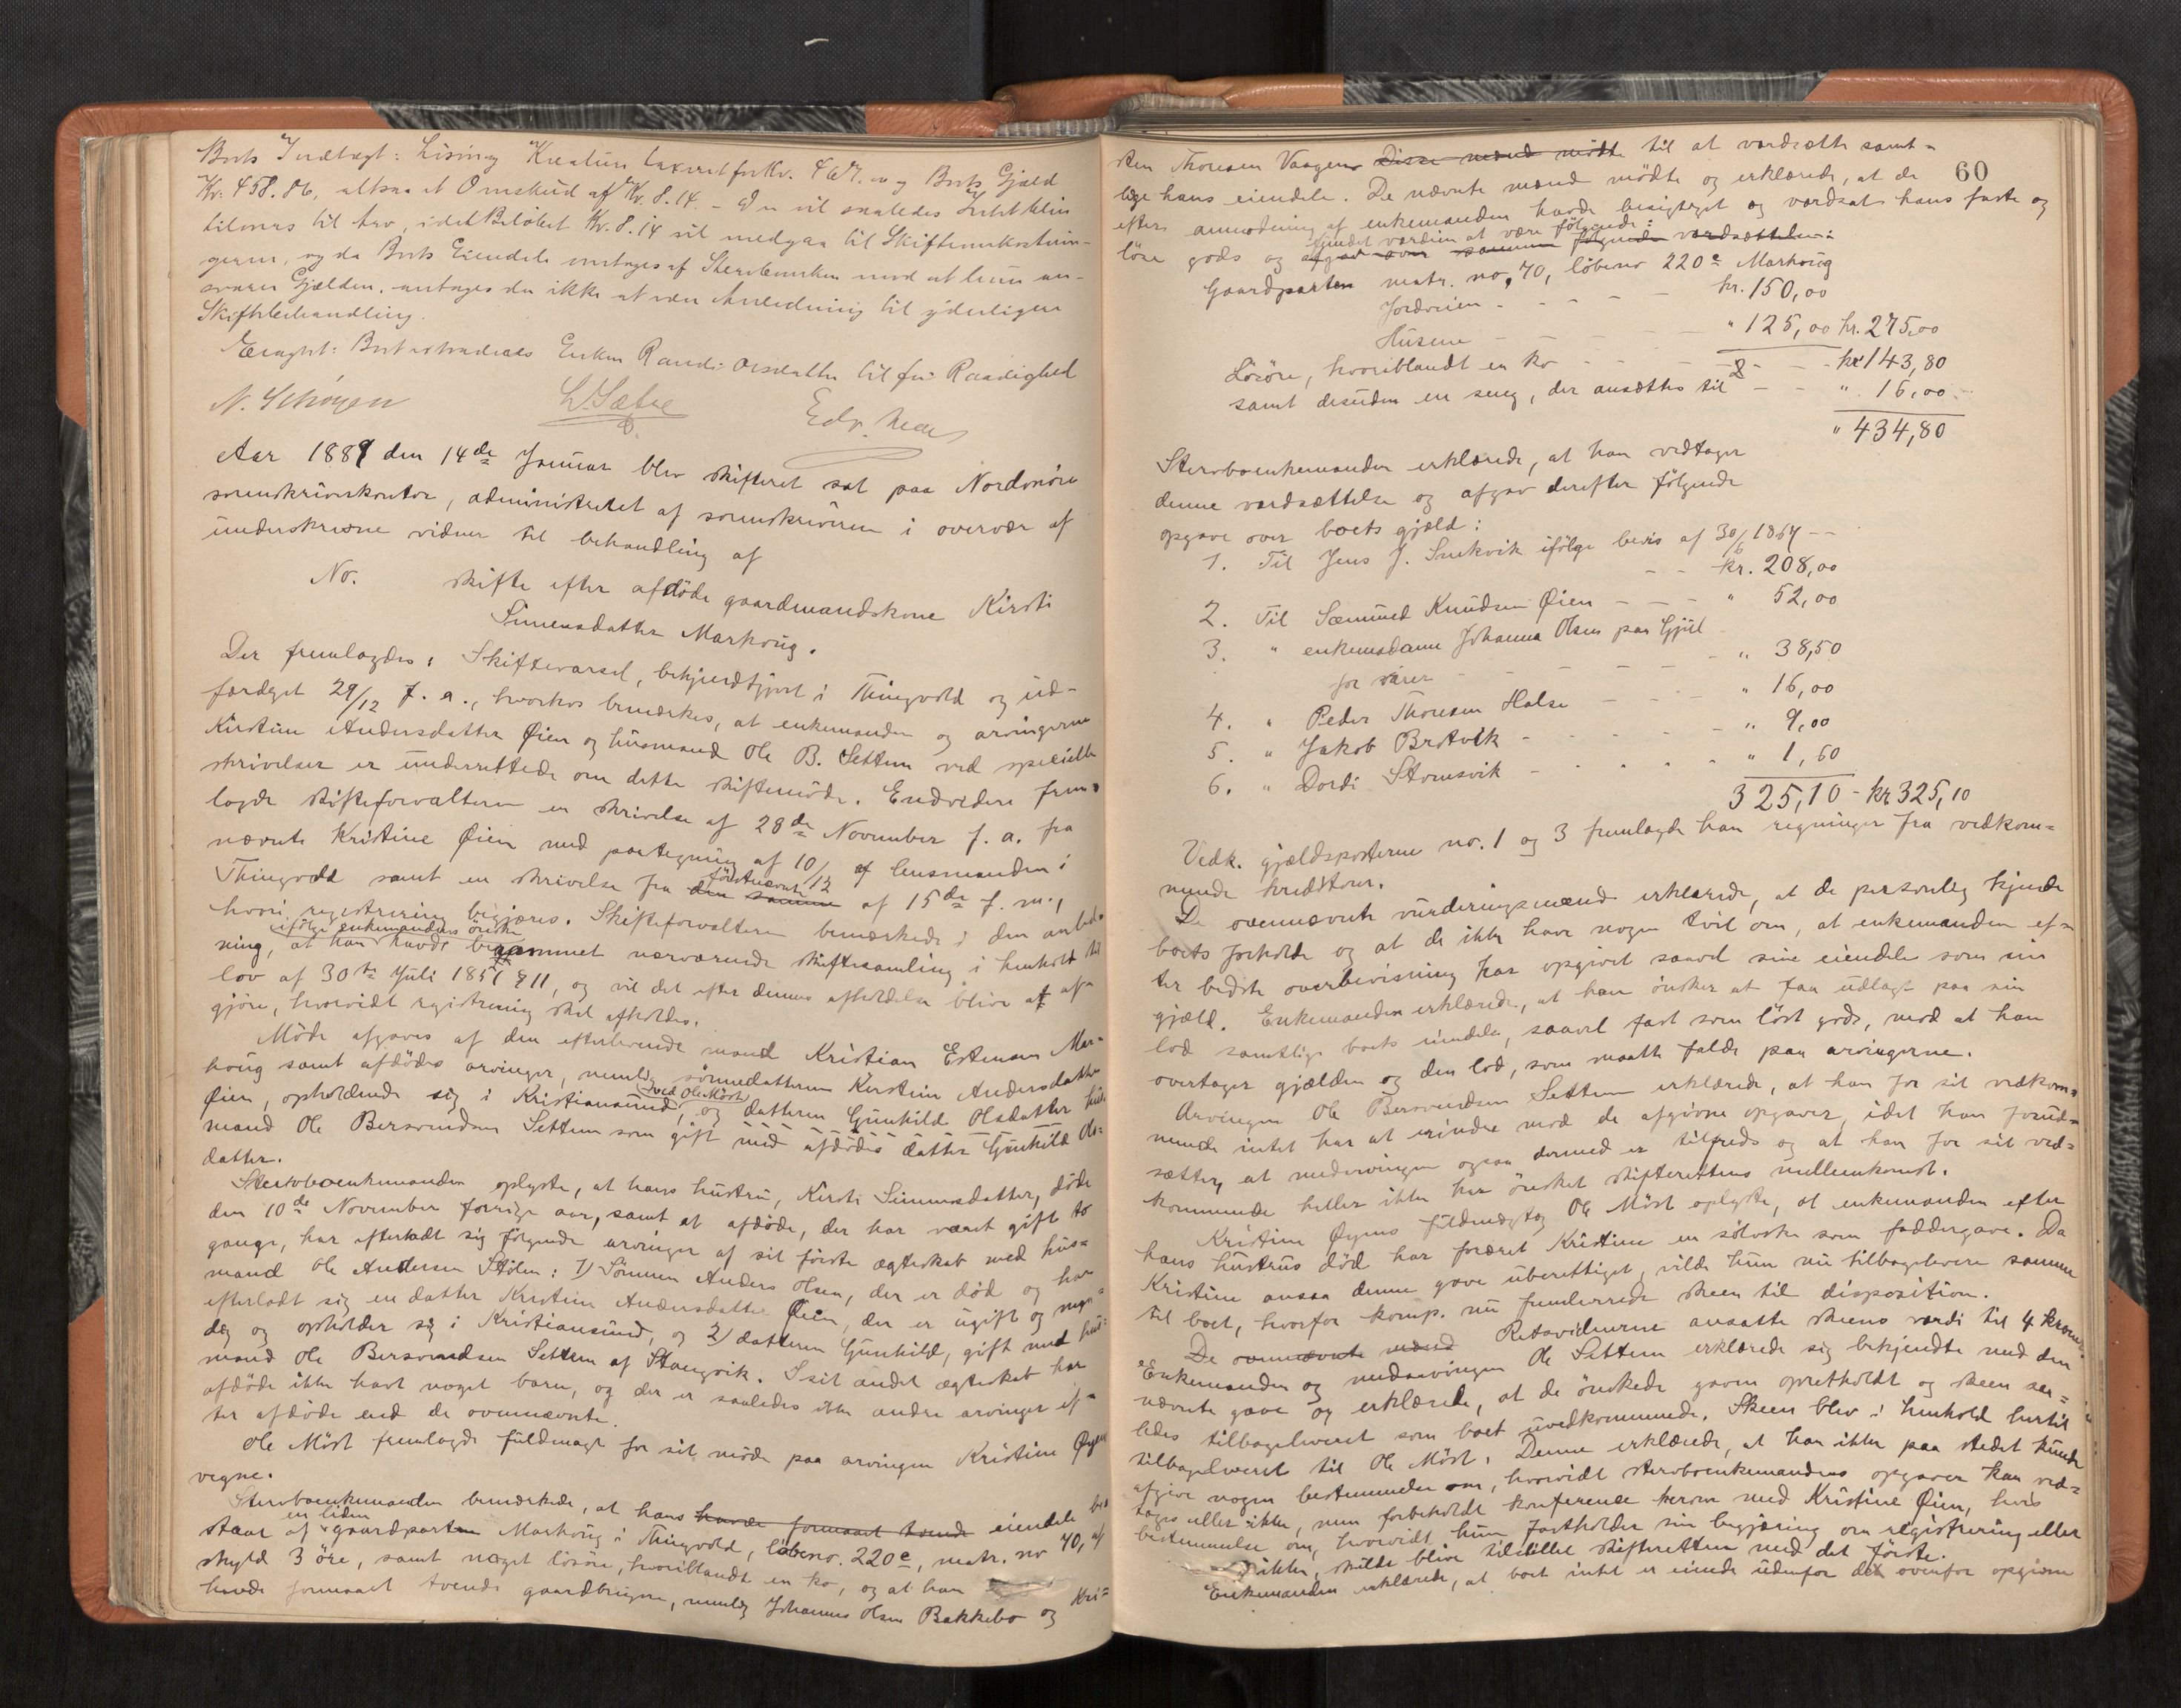 Boets Indtægt: Lösöre, Kreaturer taxeret for Kr. 467.00 og Boets Gjæld
Kr. 458.86, altsaa et Overskud af Kr. 8.14. – Der vil saaledes Intet blive
tilovers til Arv, idet Beløbet Kr. 8.14 vil medgaa til Skifteomkostnin-
gerne, og da Boets Eiendele overtages af Stervboenken mod at hun an-
svarer Gjælden, antages der ikke at være Anledning til yderligere
Skiftebehandling.
Eragtet: Boet extraderes Enken Randi Olsdatter til fri Raadighed
N. Schöyen L. Sæther Edv.
Aar 1889 den 14de Januar blev skifteret sat paa Nordmöre
sorenskriverkontor, administreret af sorenskriveren i overvær af
underskrevne vidner til behandling af
No. skifte efter afdöde gaardmandskone Kirsti
Simensdatter Markoug.
Der fremlagdes: Skiftevarsel, bekjendtgjort i Thingvold og ud-
færdiget 29/12 f. a., hvorhos bemærkes, at enkemanden og arvingerne
Kirstine Andersdatter Öien og husmand Ole B. Settem ved specielle
skrivelser er underrettede om dette skiftemöde. Endvidere frem-
lagde skifteforvalteren en skrivelse af 28de November f. a. fra
nævnte Kristine Öien med paategning af 10/12 af lensmanden i
Thingvold samt en skrivelse fra den samme förstnævnte af 15de f. m.,
hvori registrering begjæres. Skifteforvalteren bemærkede i den anled-
ning, at han ifölge enkemandens önske havde berammet nærværende skiftesamling i henhold til
lov af 30te Juli 1851 § 11, og vil det efter dennes afholdelse blive at af-
gjöre, hvorvidt registrering skal afholdes.
Möde afgaves af den efterlevende mand Kristian Estensen Mar-
houg samt afdödes arvinger, nemlig sönnedatteren Kirstine Andersdatter
Öien, opholdende sig i Kristiansund, ved Ole Möst og datteren Gunhild Olsdatter hus-
mand Ole Bersvendsen Settem som gift med afdödes datter Gunhild Ols-
datter.
Stervboenkemanden oplyste, at hans hustru, Kirsti Simensdatter, döde
den 10de November forrige aar, samt at afdöde, der har været gift to
gange, har efterladt sig fölgende arvinger af sit förste ægteskab med hus-
mand Ole Andersen Stölen: 1) Sönnen Anders Olsen, der er död og har
efterladt sig en datter Kristine Andersdatter Öien, der er ugift og myn-
dig og opholder sig i Kristiansund, og 2) datteren Gunhild, gift med hus-
mand Ole Bersvendsen Settem af Stangvik. I sit andet ægteskab har
afdöde ikke havt noget barn, og der er saaledes ikke andre arvinger ef-
ter afdöde end de ovennævnte.
Ole Möst fremlagde fuldmagt for sit möde paa arvingen Kristine Öyens
vegne.
Stervboenkemanden bemærkede, at hans havde formaaet tvende eiendele be-
staar af en liden gaardparten Markoug i Thingvold, löbeno. 220e, matr. no 70, af
skyld 3 öre, samt noget lösöre, hvoriblandt en ko, og at han
havde formaaet tvende gaardbrugere, nemlig Johannes Olsen Bakkebo og Kri-
60
sten Thoresen Vaagen Disse mænd mödte til at værdsætte samt-
lige hans eiendele. De nævnte mænd mödte og erklærede, at de
efter anmodning af enkemanden havde besigtiget og værdsat hans faste og
löse gods og afgav over samme følgende værdsættelse: fundet værdien at være fölgende:
Gaardparten matr. no. 70, löbeno 220e Markoug
Jordveien - - - - kr. 150,00
Husene - - - - " 125,00 kr. 275,00
Lösöre, hvoriblandt en ko - - - - kr 143,80
samt desuden en seng, der ansættes til - - " 16,00
" 434,80
Stervboenkemanden erklærede, at han vedtager
denne værdsættelse og afgav derefter fölgende
opgave over boets gjæld:
1. Til Jens J. Surkvik ifölge bevis af 30/6 1867 --
- - kr. 208,00
2. Til Sæmund Knudsen Öien - - - " 52,00
3. " enkemadame Johanna Olsen paa Gjul
for varer - - - - " 38,50
4. " Peder Thoresen Halse - - - " 16,00
5. " Jakob Brøtvik - - - - " 9,00
6. " Dordi Stomsvik - - - - " 1,60
325,10 - kr 325,10
Vedk. gjældsposterne no. 1 og 3 fremlagde han regninger fra vedkom-
mende kreditorer.
De ovennævnte vurderingsmænd erklærede, at de personlig kjende
boets forholde og at de ikke have nogen tvil om, at enkemanden ef-
ter bedste overbevisning har opgivet saavel sine eiendele som sin
gjæld. Enkemanden erklærede, at han önsker at faa udlagt paa sin
lod samtlige boets eiendele, saavel fast som löst gods, mod at han
overtager gjælden og den lod, som maatte falde paa arvingerne.
Arvingen Ole Bersvendsen Settem erklærede, at han for sit vedkom-
mende intet har at erindre mod de afgivne opgaver, idet han forud-
sætter, at medarvingen ogsaa dermed er tilfreds og at han for sit ved-
kommende heller ikke har önsket skifterettens mellemkomst.
Kristine Öyens fuldmægtig Ole Möst oplyste, at enkemanden efter
hans hustrus död har foræret Kristine en sölvske som faddergave. Da
Kristine ansaa denne gave uberettiget, vilde hun nu tilbagelevere samme
til boet, hvorfor komp. nu fremleverede skeen til disposition.
De ovennævnte mænd Retsvidnerne ansatte skeens værdi til 4 kroner.
Enkemanden og medarvingen Ole Settem erklærede sig bekjendte med den
nævnte gave og erklærede, at de önskede gaven opretholdt og skeen saa-
ledes tilbageleveret som boet uvedkommende. Skeen blev i henhold hertil
tilbageleveret til Ole Möst. Denne erklærede, at han ikke paa stedet kunde
afgive nogen bestemmelse om, hvorvidt stervboenkemandens opgaver kan ved-
tages eller ikke, men forbeholdt konference herom med Kristine Öien, hvis
bestemmelse om, hvorvidt hun fastholder sin begjæring om registrering eller
ikke, skulde blive tilstillet skifteretten med det förste.
Enkemanden erklærede, at boet intet er eiende udenfor det ovenfor opgivne